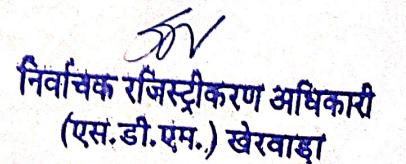 निर्वाचक रजिस्ट्रीकरण अधिकारी
(एस.डी.एम.) खेरवाड़ा